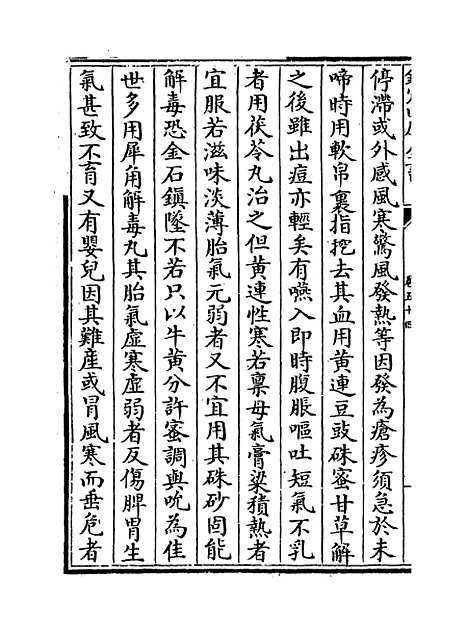 停滯或外感風寒驚風發熱等因發為瘡疹須急於未
啼時用軟帛裹指挖去其血用黄連豆豉硃蜜甘草解
之後雖出痘亦輕矣有嚥入即時腹脹嘔吐短氣不乳
者用茯苓丸治之但黄連性寒若稟母氣膏粱積熱者
宜服若滋味淡薄胎氣元弱者又不宜用其硃砂固能
解毒恐金石鎮墜不若只以牛黄分許蜜調與吮為佳
世多用犀角解毒丸其胎氣虛寒虛弱者反傷脾胃生
氣甚致不育又有嬰兒因其難產或冒風寒而垂危者